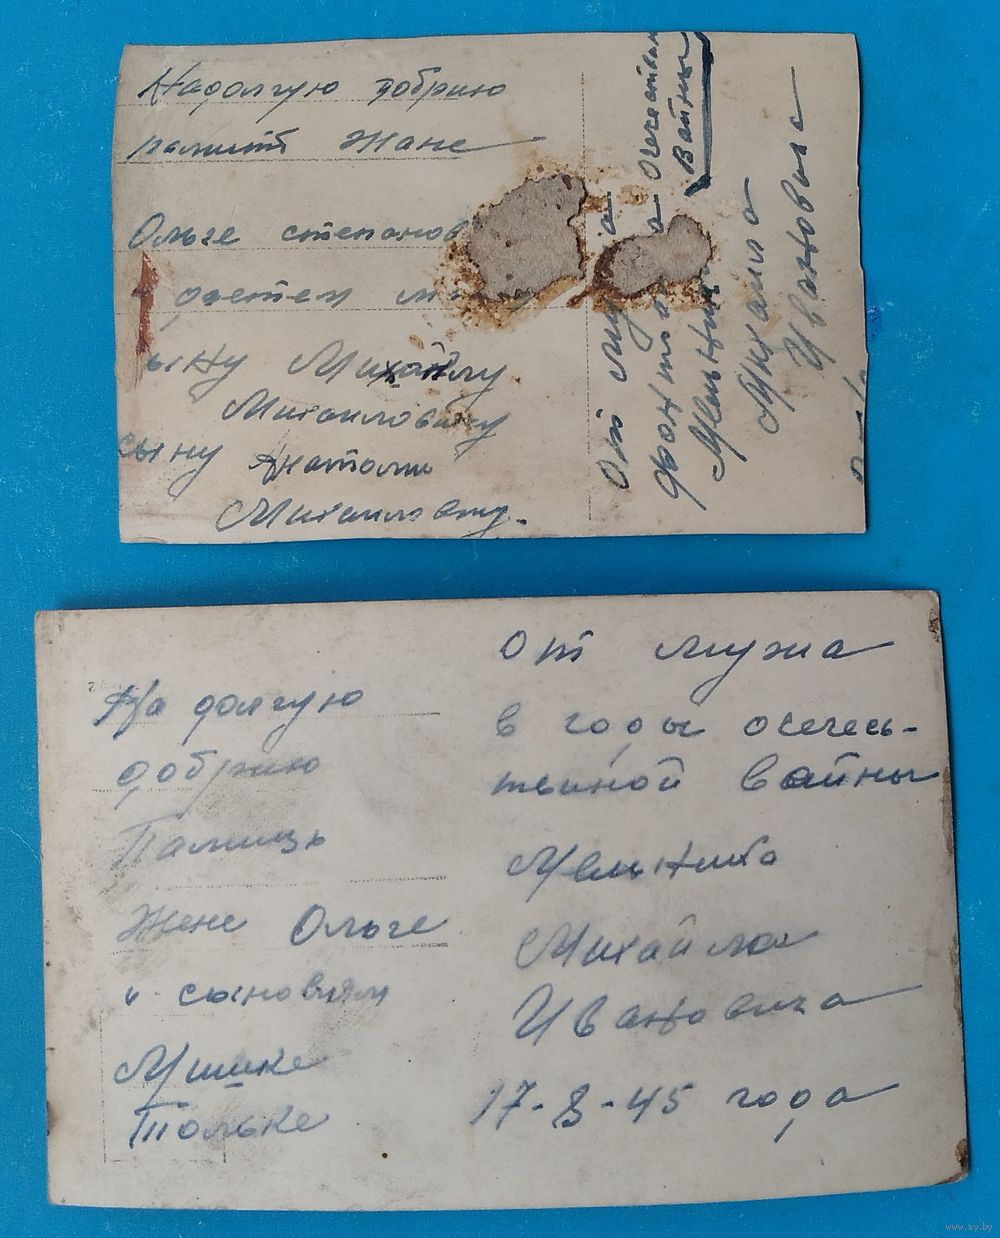 Надолгую добрию
памить Жане
Ольге степанов
детем
ыну Михайлу
Михайловичу
сыну Анатоли
Михаиловичу.
От
Очечествен
Вайны
Михаила
Ивановича
На долгую
добрию
Памить
Жене Ольге
и сыновям
Мишке
Тольке
От мужа
в годы очечесь-
твиной вайны
Мельника
Михайла
Ивановича
17-8-45 года
www.ay.by